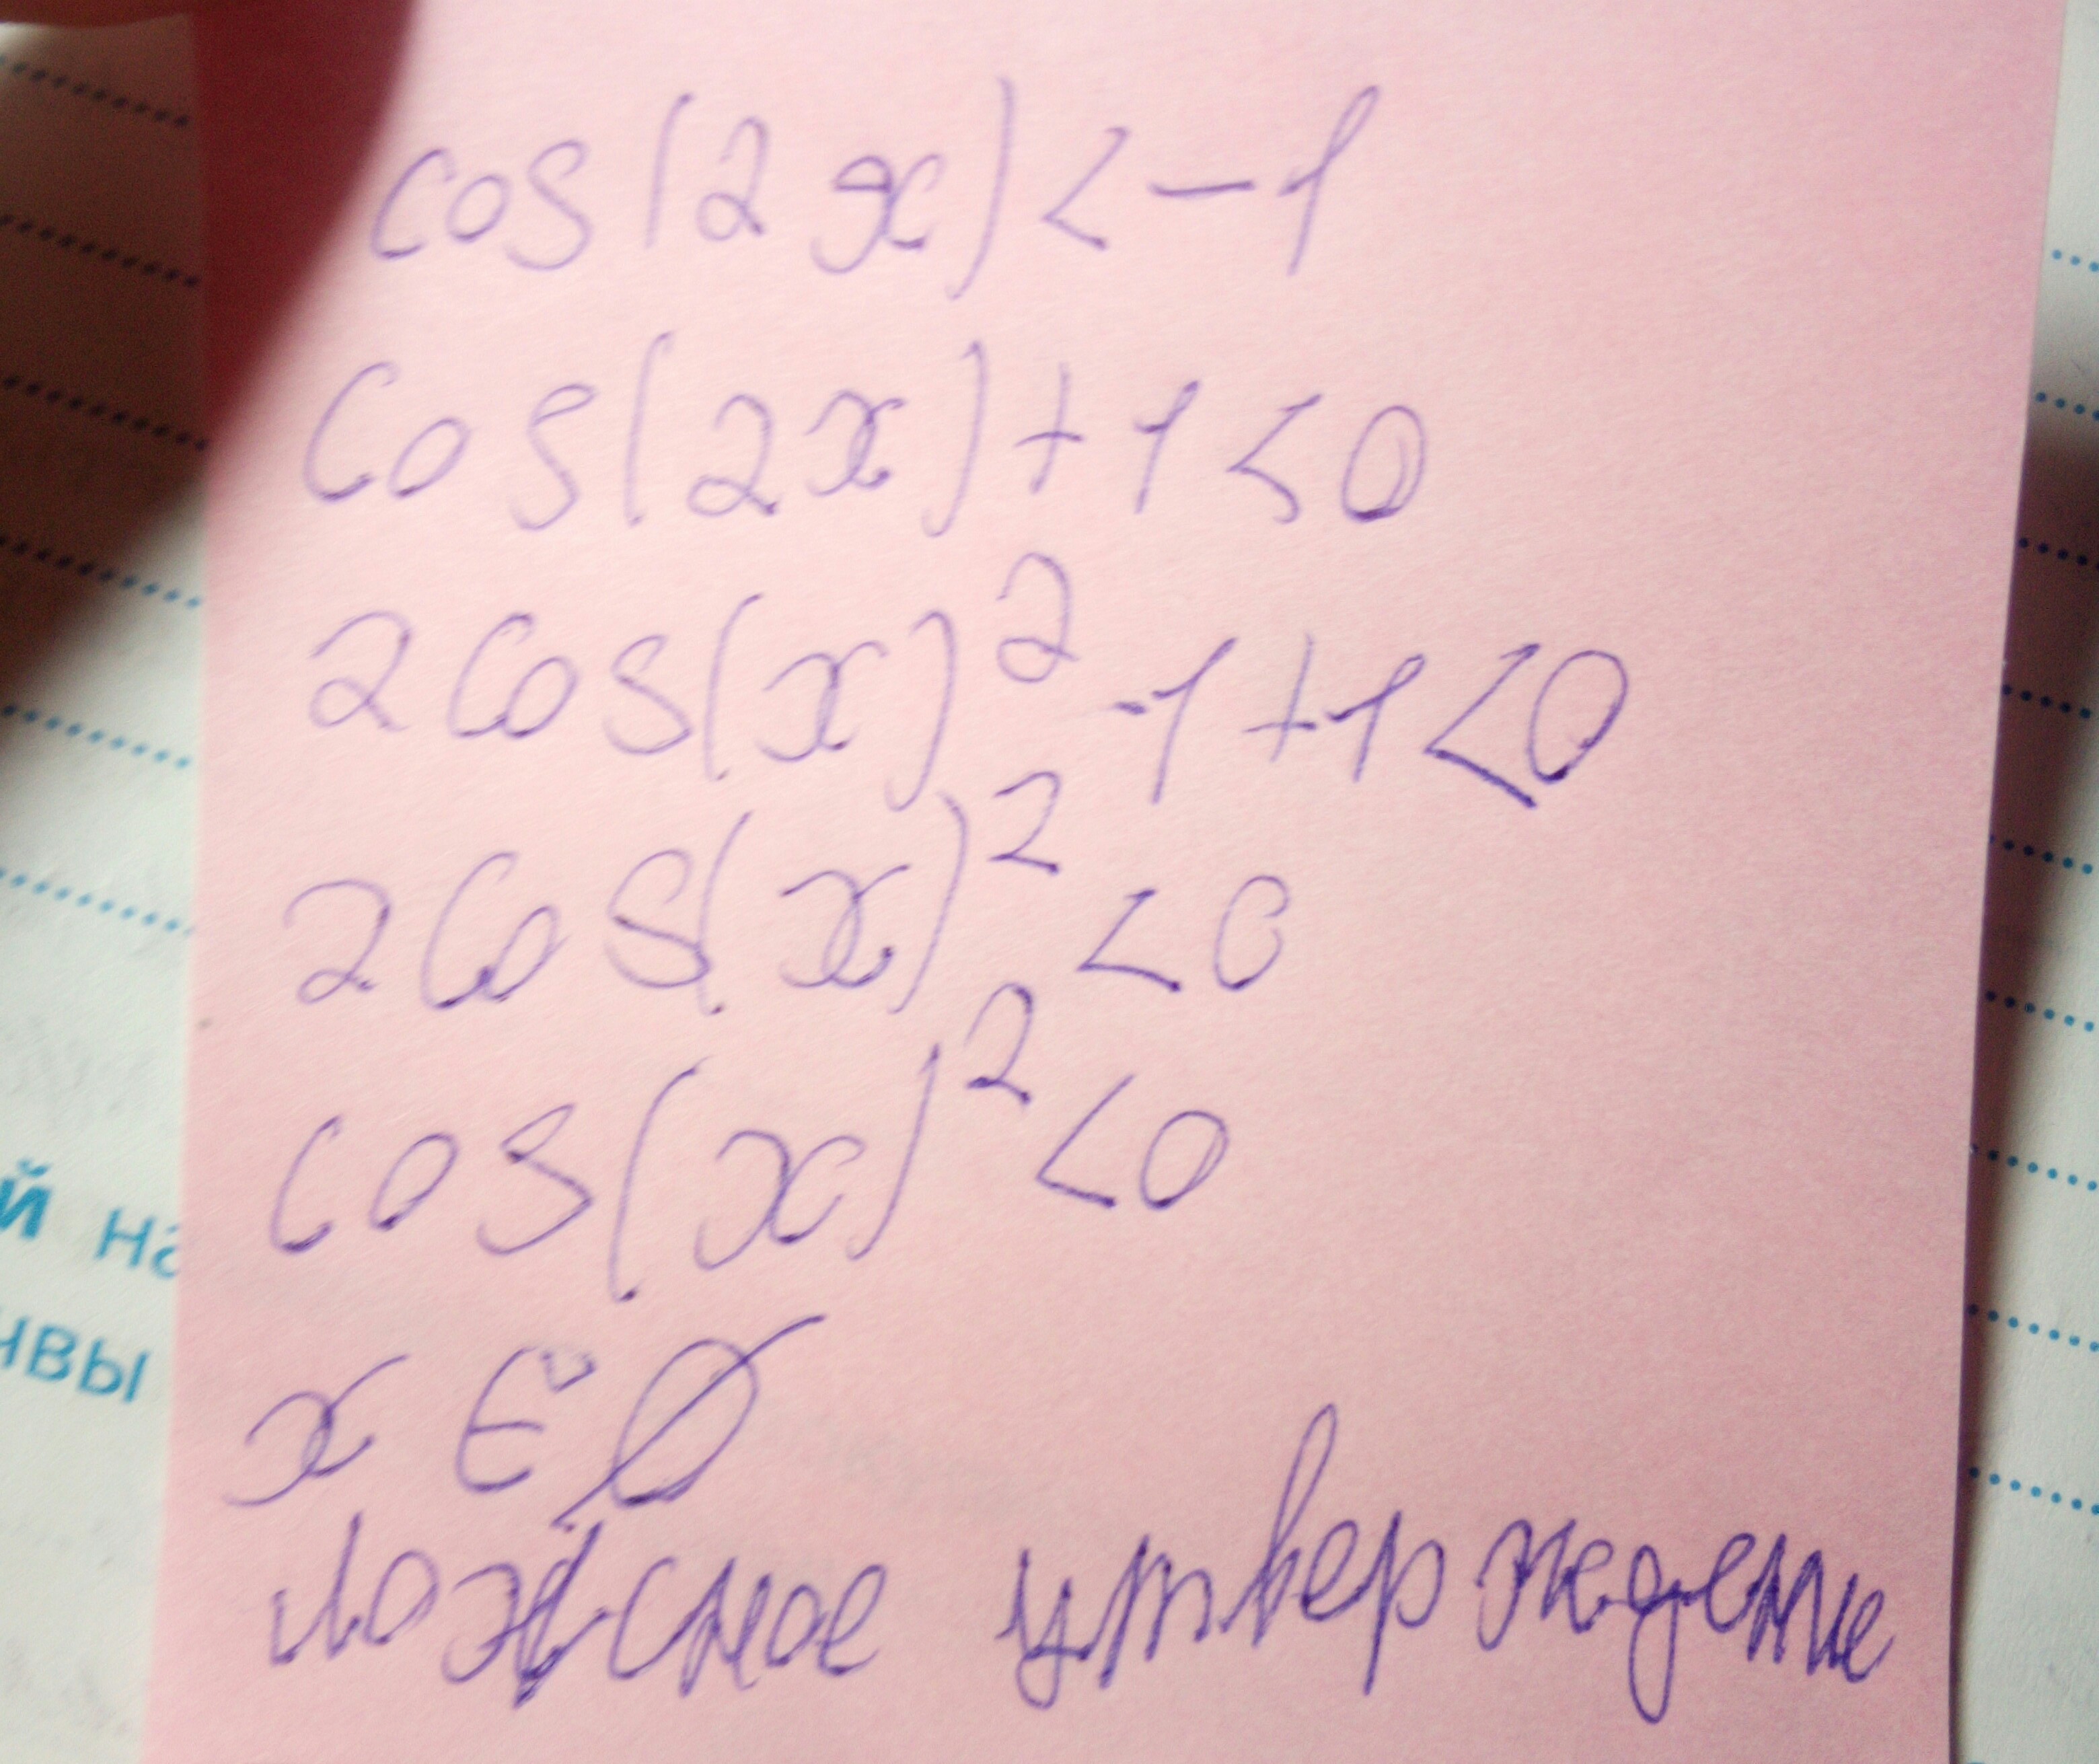 cos(2x)<-1
cos(2x)+1<0
2cos(x)²-1+1<0
2cos(x)²<0
cos(x)²<0
x∈∅
ложное утверждение
й на
ивы